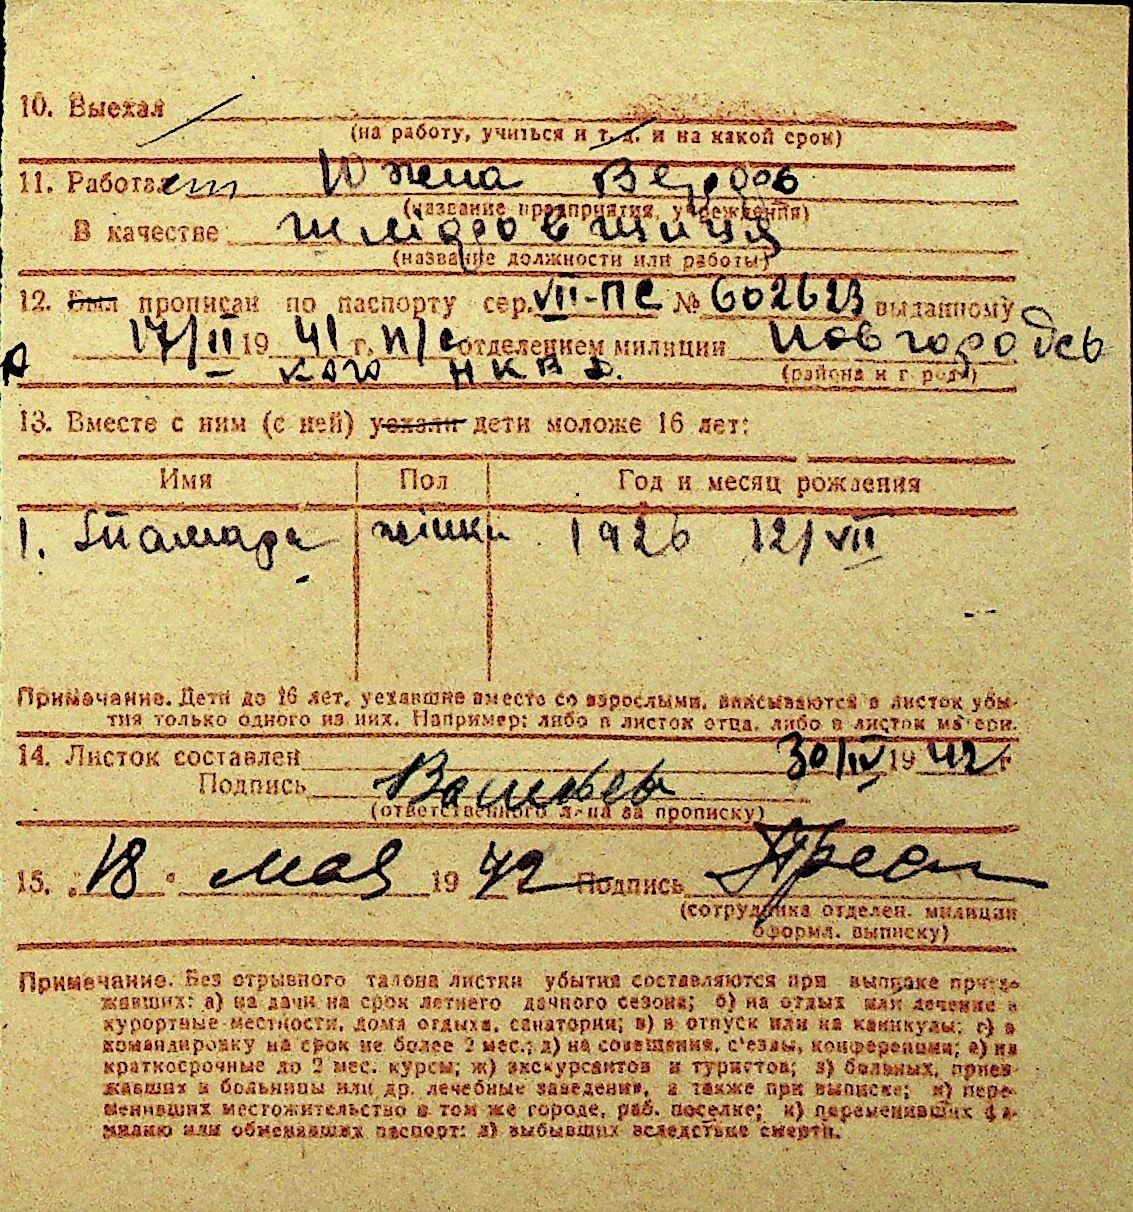 10. Выехал
(на работу, учиться и т. д. и на какой срок)
11. Работает Южная Верфь
(название предприятия, учреждения)
В качестве
(название должности или работы)
12. Был прописан по паспорту сер. VII-ПС № 602623 выданному
17/II 19 41 г. П/С отделением милиции Новгородсь
кого НКВД.
(района и г род)
13. Вместе с ним (с ней) уехали дети моложе 16 лет:
Имя Пол Год и месяц рождения
1. Тамара жінки 1926 12/VII
Примечание. Дети до 16 лет, уехавшие вместе со взрослыми, вписываются в листок убы-
тия только одного из них. Например: либо в листок отца, либо в листок матери.
14. Листок составлен 30/IV 19 42 г
Подпись Васильев
(ответственного лица за прописку)
15. „18" мая 19 42 г. Подпись
(сотрудника отделен. милиции
оформл. выписку)
Примечание. Без отрывного талона листки убытия составляются при выписке прието
жавших: а) на дачи на срок летнего дачного сезона; б) на отдых или лечение в
курортные местности, дома отдыха, санатории; в) в отпуск или на каникулы; г) в
командировку на срок не более 2 мес.; д) на совещания, с'езды, конференции; е) на
краткосрочные до 2 мес. курсы; ж) экскурсантов и туристов; з) больных, приез-
жавших в больницы или др. лечебные заведения, а также при выписке; и) пере-
менивших местожительство в том же городе, раб. поселке; к) переменивших фа-
милию или обменявших паспорт; л) выбывших вследствие смерти.